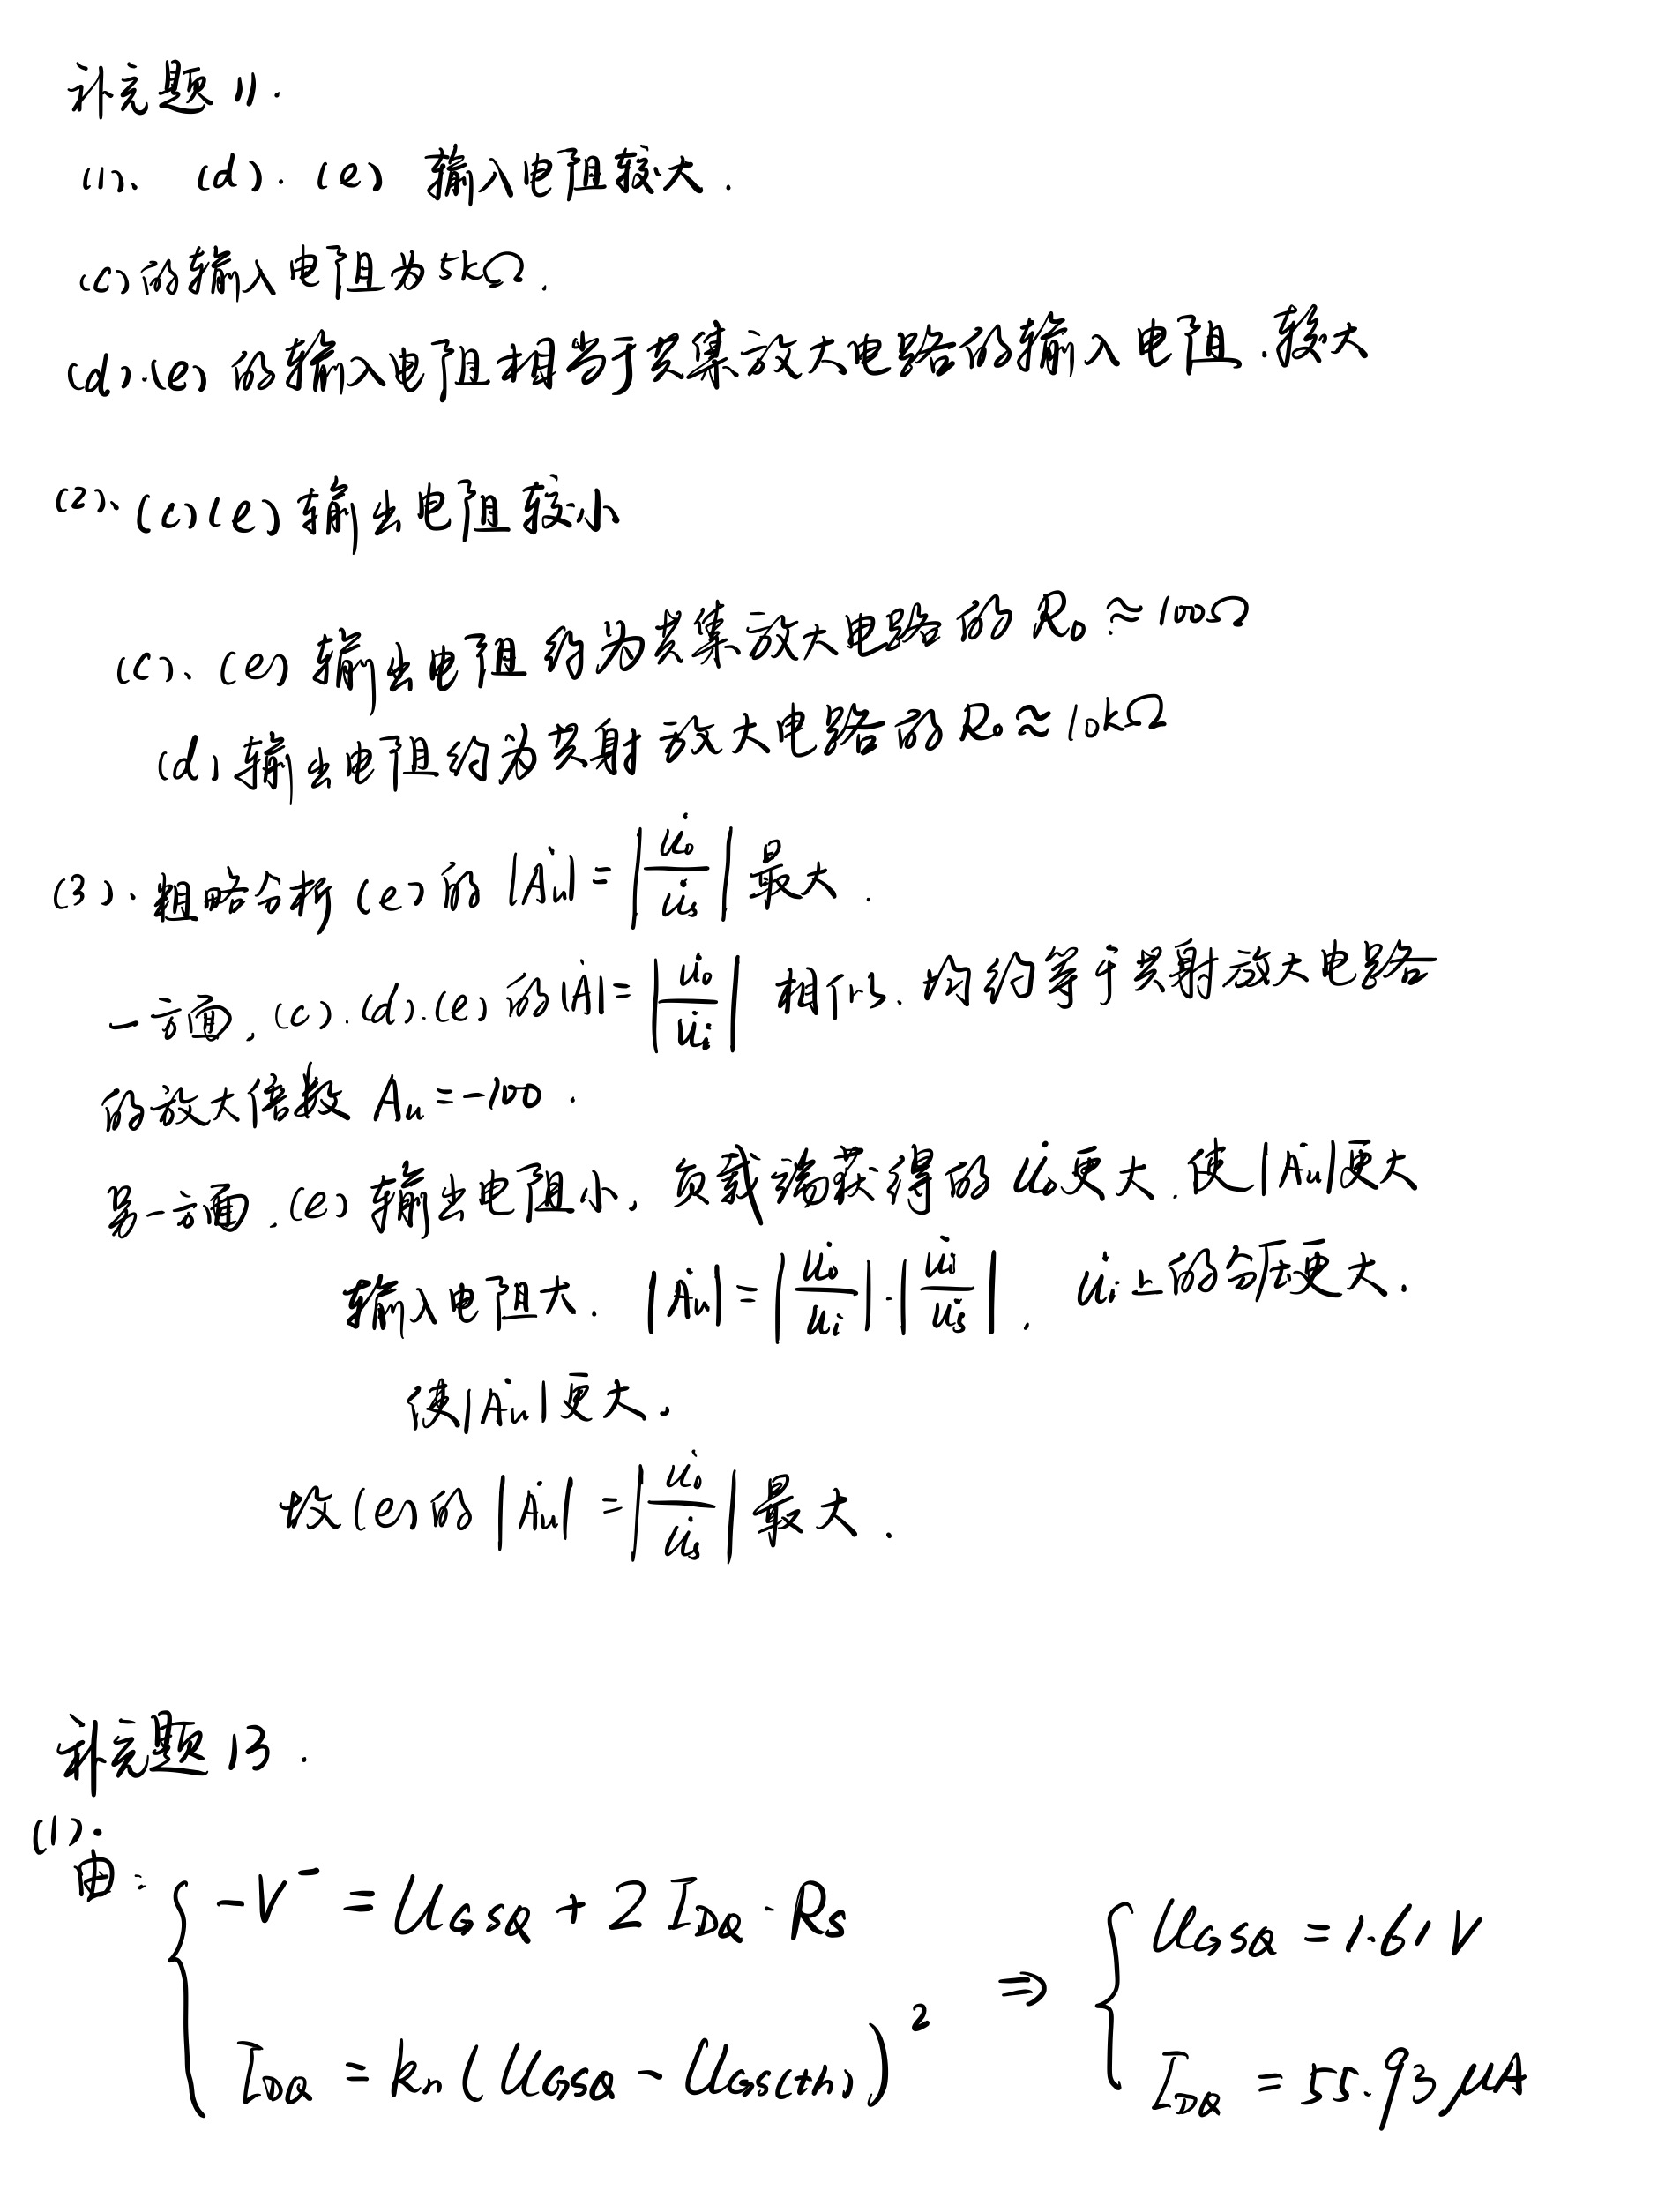 补充题 11.
(1)、 (d).(e) 输入电阻较大.
(c)的输入电阻为5kΩ.
(d).(e) 的输入电阻相当于共集放大电路的输入电阻.较大
(2)、(c)(e)输出电阻较小
(c)、(e)输出电阻约为共集放大电路的 R₀≈100Ω
(d)输出电阻约为共射放大电路的 R₀≈10kΩ
(3).粗略分析(e)的 |Ȧu| = |u̇o/u̇s| 最大.
一方面,(c).(d).(e)的|Ȧ|=|u̇o/u̇i| 相似.均约等于共射放大电路
的放大倍数 Au=-100.
另一方面.(e)输出电阻小,负载端获得的 u̇o更大.使|Ȧu|更大
输入电阻大. |Ȧu|=|u̇o/u̇i|·|u̇i/u̇s|. u̇i上的分压更大.
使|Ȧu|更大。
故(e)的|Ȧu| =|u̇o/u̇s|最大.
补充题13.
(1).
由: { -V⁻ = U_GSQ + 2I_DQ·Rs ⇒ { U_GSQ = 1.61V
I_DQ = kn(U_GSQ - U_GS(th))² I_DQ = 55.93μA